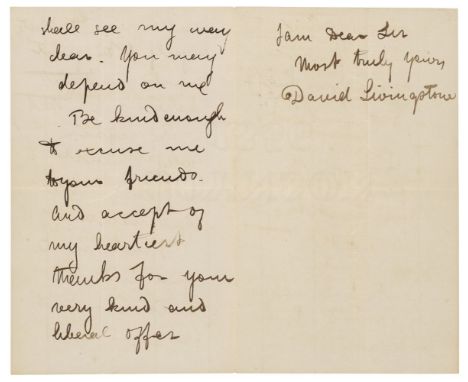 shall see my way
clear. You may
depend on me
Be kind enough
to excuse me
to your friends.
and accept of
my heartiest
thanks for your
very kind and
liberal offer
I am Dear Sir
Most truly yours
David Livingstone